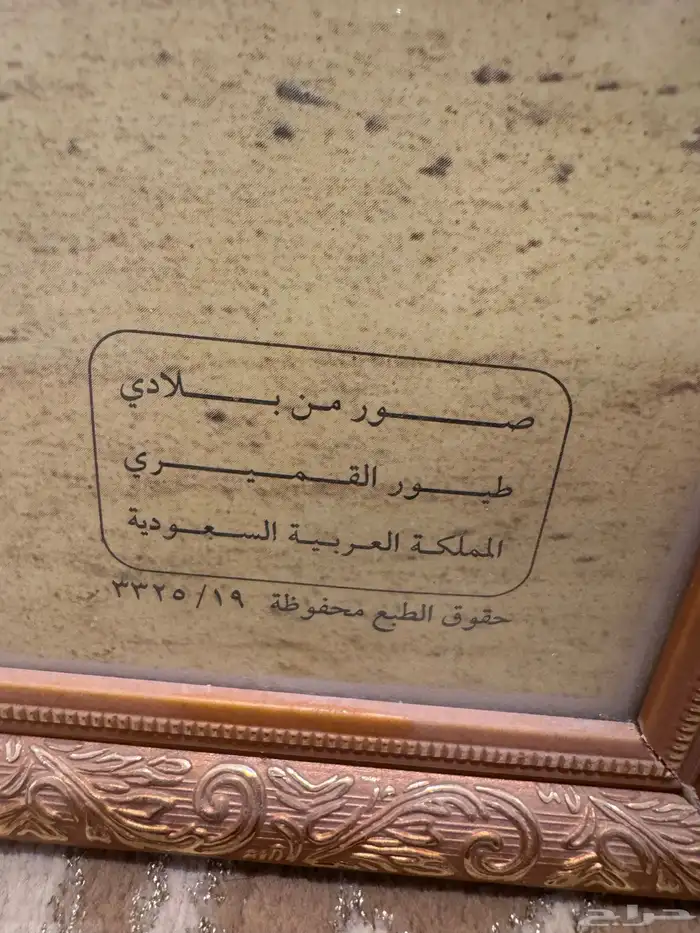 صور من بلادي
طيور القميري
المملكة العربية السعودية
حقوق الطبع محفوظة ١٩/ ٣٣٢٥
حراج